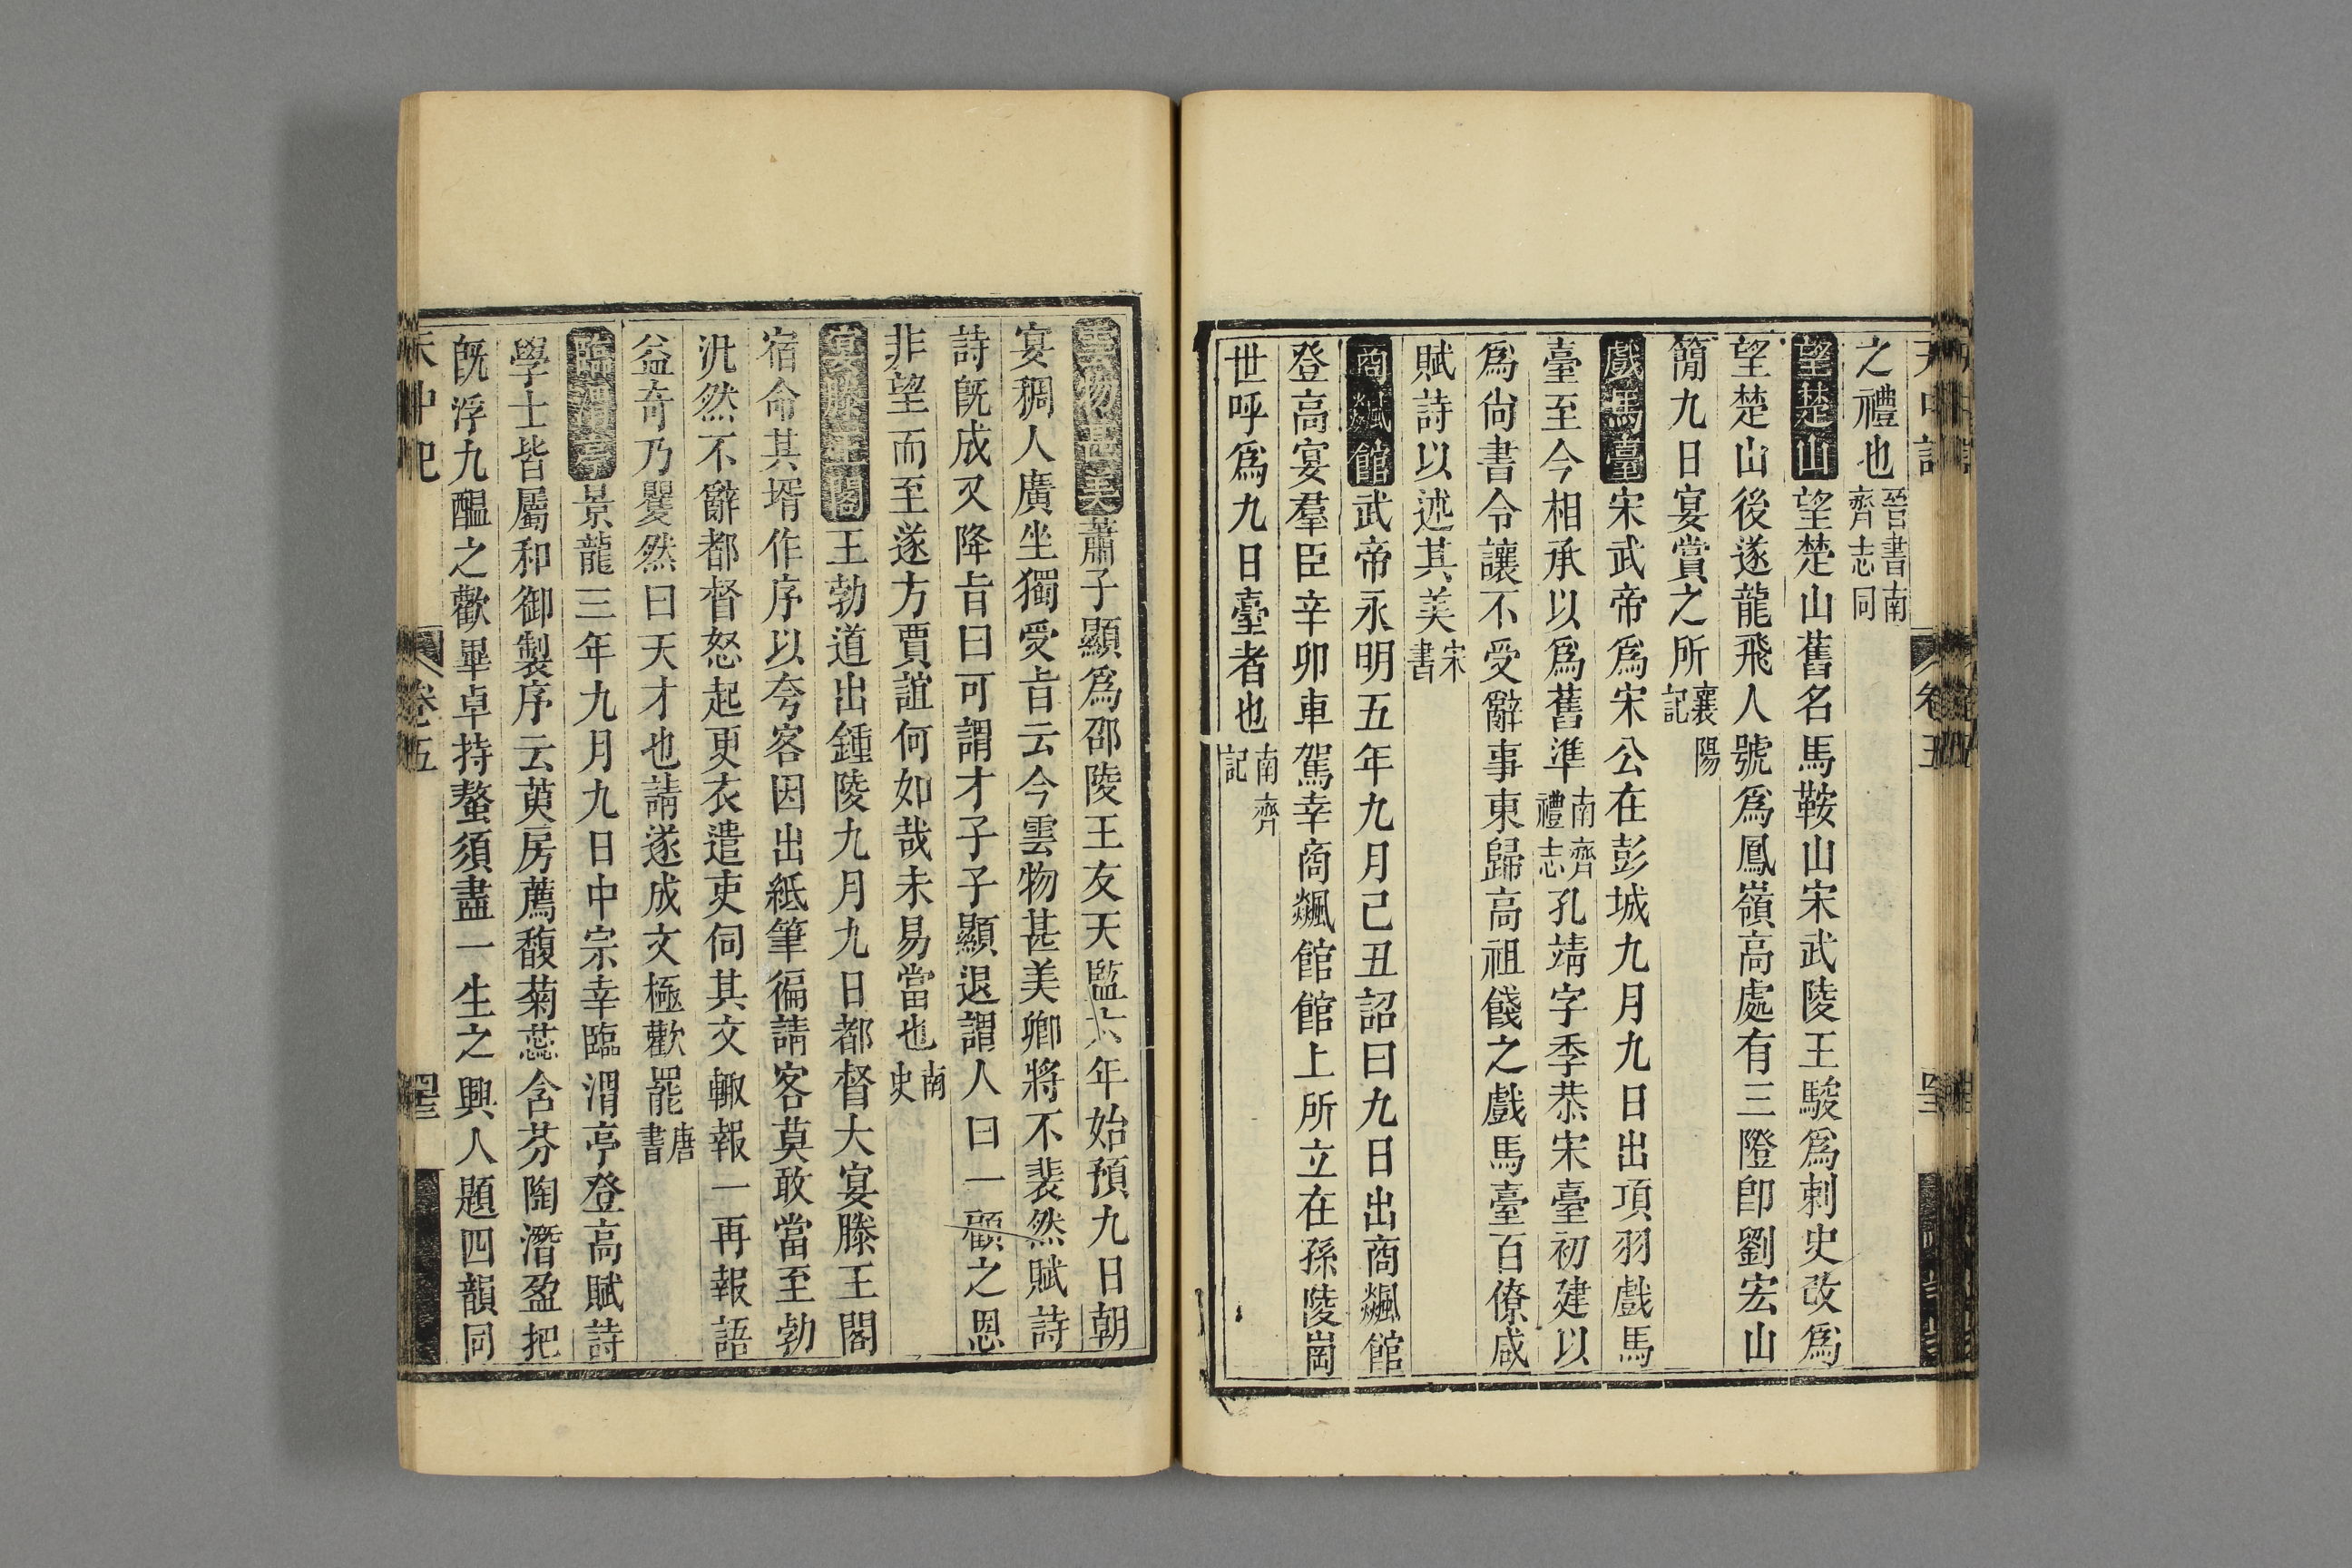 之禮也晉書南齊志同
望楚山望楚山舊名馬鞍山宋武陵王駿爲刺史改爲
望楚山後遂龍飛人號爲鳳嶺高處有三隥卽劉宏山
簡九日宴賞之所襄陽記
戲馬臺宋武帝爲宋公在彭城九月九日出項羽戲馬
臺至今相承以爲舊準南齊禮志孔靖字季恭宋臺初建以
爲尙書令讓不受辭事東歸高祖餞之戲馬臺百僚咸
賦詩以述其美宋書
商飈館武帝永明五年九月己丑詔曰九日出商飈館
登高宴羣臣辛卯車駕幸商飈館館上所立在孫陵崗
世呼爲九日臺者也南齊記
雲物甚美蕭子顯爲邵陵王友天監六年始預九日朝
宴稠人廣坐獨受旨云今雲物甚美卿將不裴然賦詩
詩旣成又降旨曰可謂才子子顯退謂人曰一顧之恩
非望而至遂方賈誼何如哉未易當也南史
宴滕王閣王勃道出鍾陵九月九日都督大宴滕王閣
宿命其壻作序以夸客因出紙筆徧請客莫敢當至勃
沇然不辭都督怒起更衣遣吏伺其文輙報一再報語
益奇乃矍然曰天才也請遂成文極歡罷唐書
臨渭亭景龍三年九月九日中宗幸臨渭亭登高賦詩
學士皆屬和御製序云萸房薦馥菊蕊含芬陶潛盈把
旣浮九醞之歡畢卓持螯須盡一生之興人題四韻同
天中記 卷五